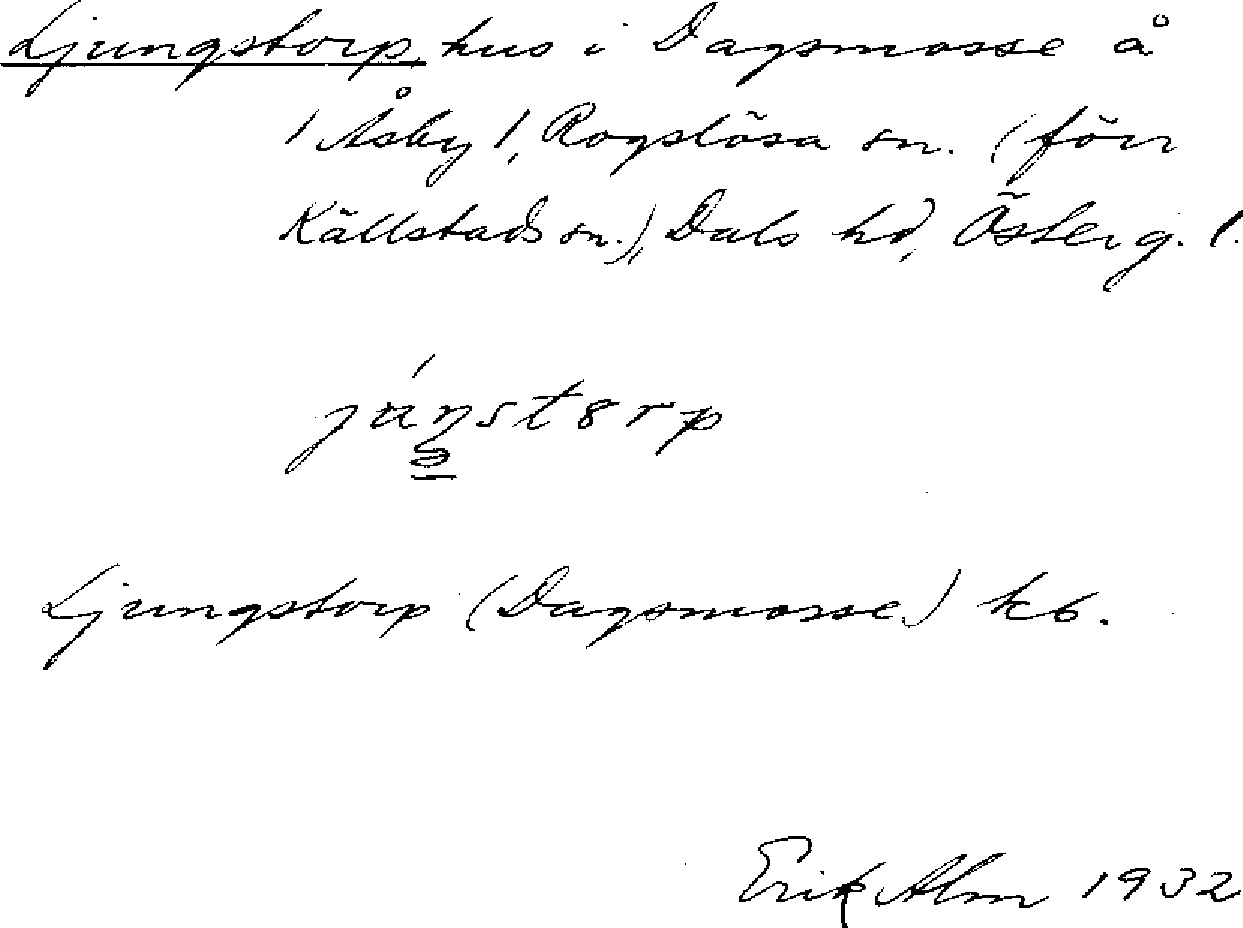 Ljungstorp, hus i Dagsmosse å
1 Åsby 1, Rogslösa sn. (förr
Källstads sn.), Dals hd, Österg. l.
Ljungstorp (Dagsmosse) kb.
Erik Alm 1932